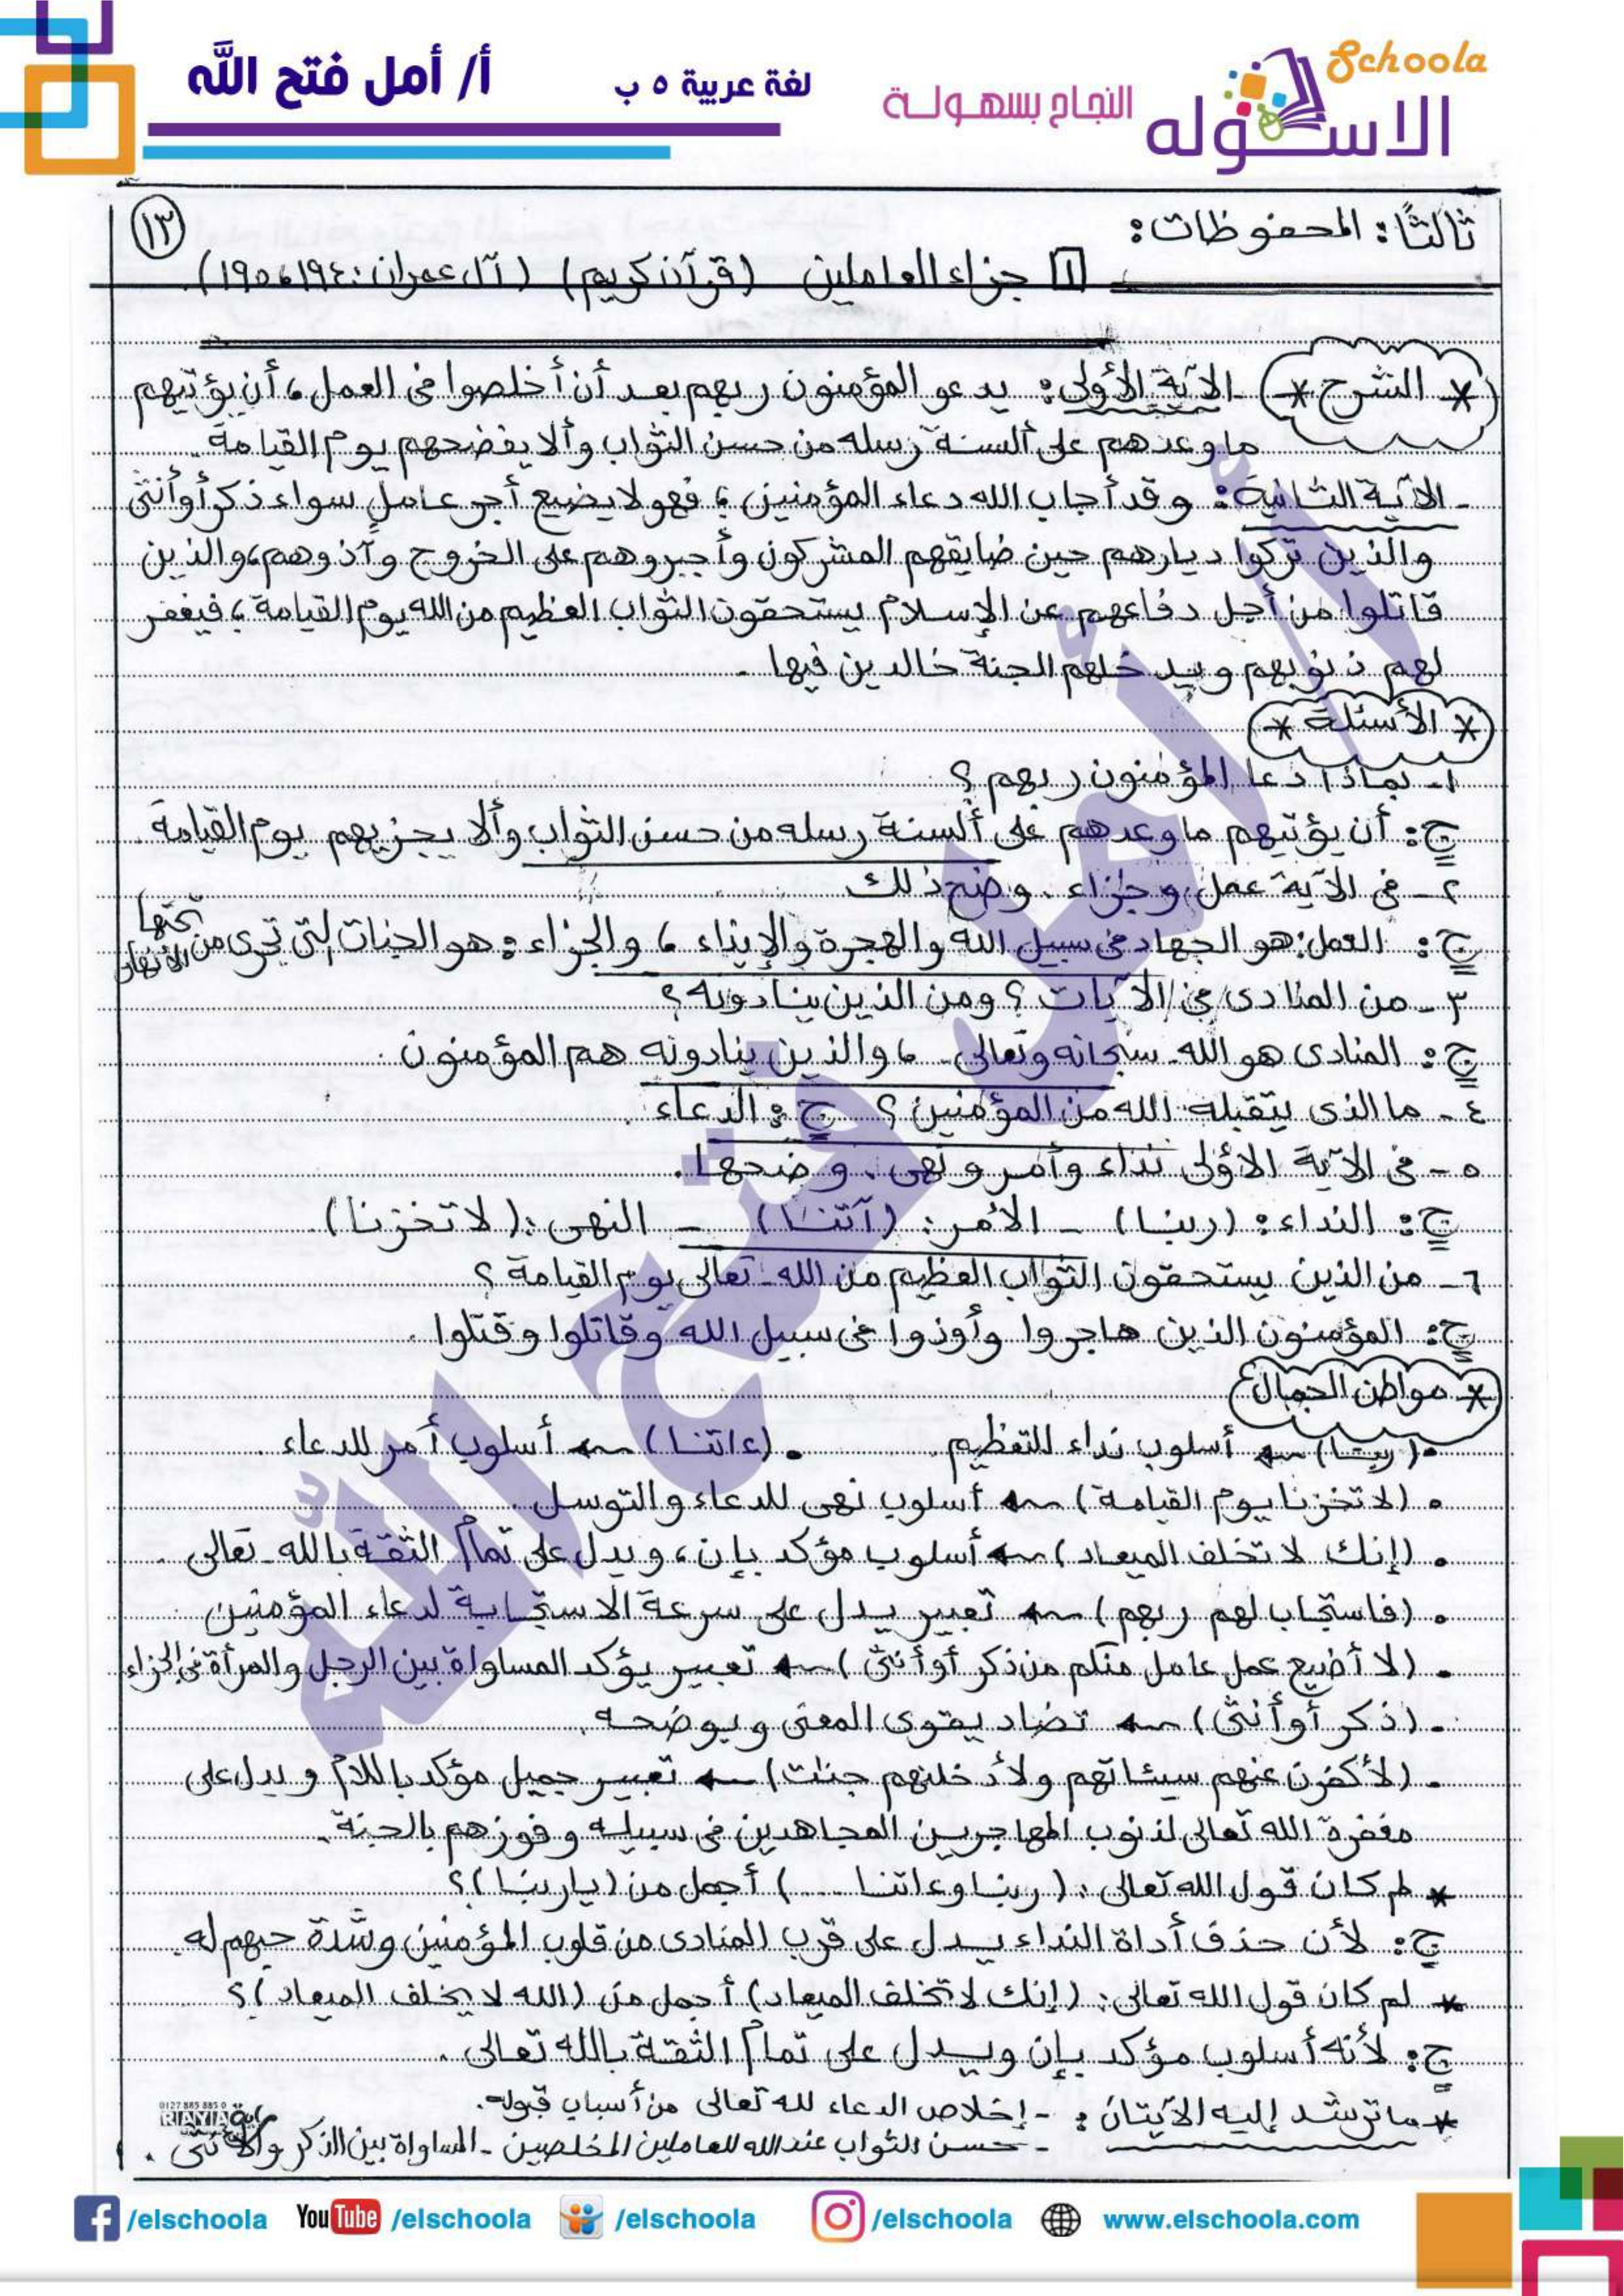 أ/ أمل فتح الله
لغة عربية ٥ ب
النجاح بسهولة
Schoola
الاسكوله
١٣
ثالثًا: المحفوظات:
١ جزاء العاملين (قرآن كريم) (آل عمران: ١٩٤، ١٩٥).
* الشرح * الآية الأولى: يدعو المؤمنون ربهم بعد أن أخلصوا فى العمل، أن يؤتيهم
ما وعدهم على ألسنة رسله من حسن الثواب وألا يفضحهم يوم القيامة.
- الآية الثانية: وقد أجاب الله دعاء المؤمنين، فهو لا يضيع أجر عاملٍ سواء ذكر أو أنثى
والذين تركوا ديارهم حين ضايقهم المشركون وأجبروهم على الخروج وآذوهم، والذين
قاتلوا من أجل دفاعهم عن الإسلام يستحقون الثواب العظيم من الله يوم القيامة، فيغفر
لهم ذنوبهم ويدخلهم الجنة خالدين فيها.
* الأسئلة *
١- بماذا دعا المؤمنون ربهم؟
ج: أن يؤتيهم ما وعدهم على ألسنة رسله من حسن الثواب وألا يجزيهم يوم القيامة.
٢- فى الآية عمل وجزاء. وضح ذلك
ج: العمل: هو الجهاد فى سبيل الله والهجرة والإيذاء، والجزاء: هو الجنات التى تجرى من تحتها الأنهار
٣- من المنادى فى الآيات؟ ومن الذين ينادونه؟
ج: المنادى هو الله - سبحانه وتعالى -، والذين ينادونه هم المؤمنون.
٤- ما الذى يتقبله الله من المؤمنين؟ ج: الدعاء.
٥- فى الآية الأولى نداء وأمر ونهى. وضحها.
ج: النداء: (ربنا) - الأمر: (آتنا) - النهى: (لا تخزنا).
٦- من الذين يستحقون الثواب العظيم من الله - تعالى يوم القيامة؟
ج: المؤمنون الذين هاجروا وأوذوا فى سبيل الله وقاتلوا وقتلوا.
* مواطن الجمال
• (ربنا) ← أسلوب نداء للتعظيم. • (ءاتنا) ← أسلوب أمر للدعاء.
• (لا تخزنا يوم القيامة) ← أسلوب نهى للدعاء والتوسل.
• (إنك لا تخلف الميعاد) ← أسلوب مؤكد بإن، ويدل على تمام الثقة بالله - تعالى -
• (فاستجاب لهم ربهم) ← تعبير يدل على سرعة الاستجابة لدعاء المؤمنين
• (لا أضيع عمل عامل منكم من ذكر أو أنثى) ← تعبير يؤكد المساواة بين الرجل والمرأة فى الجزاء
• (ذكر أو أنثى) ← تضاد يقوى المعنى ويوضحه.
• (لأكفرن عنهم سيئاتهم ولأدخلنهم جنات) ← تعبير جميل مؤكد باللام ويدل على
مغفرة الله تعالى لذنوب المهاجرين المجاهدين فى سبيله وفوزهم بالجنة.
* لم كان قول الله تعالى: (ربنا وءاتنا ....) أجمل من (يا ربنا)؟
ج: لأن حذف أداة النداء يدل على قرب المنادى من قلوب المؤمنين وشدة حبهم له.
* لم كان قول الله تعالى: (إنك لا تخلف الميعاد) أجمل من (الله لا يخلف الميعاد)؟
ج: لأنه أسلوب مؤكد بإن ويدل على تمام الثقة بالله تعالى.
* ما ترشد إليه الآيتان: - إخلاص الدعاء لله تعالى من أسباب قبوله.
- حسن الثواب عند الله للعاملين المخلصين - المساواة بين الذكر والأنثى.
0127 885 885 0
RAYIA
أ/ أمل فتح الله
/elschoola YouTube /elschoola /elschoola /elschoola www.elschoola.com